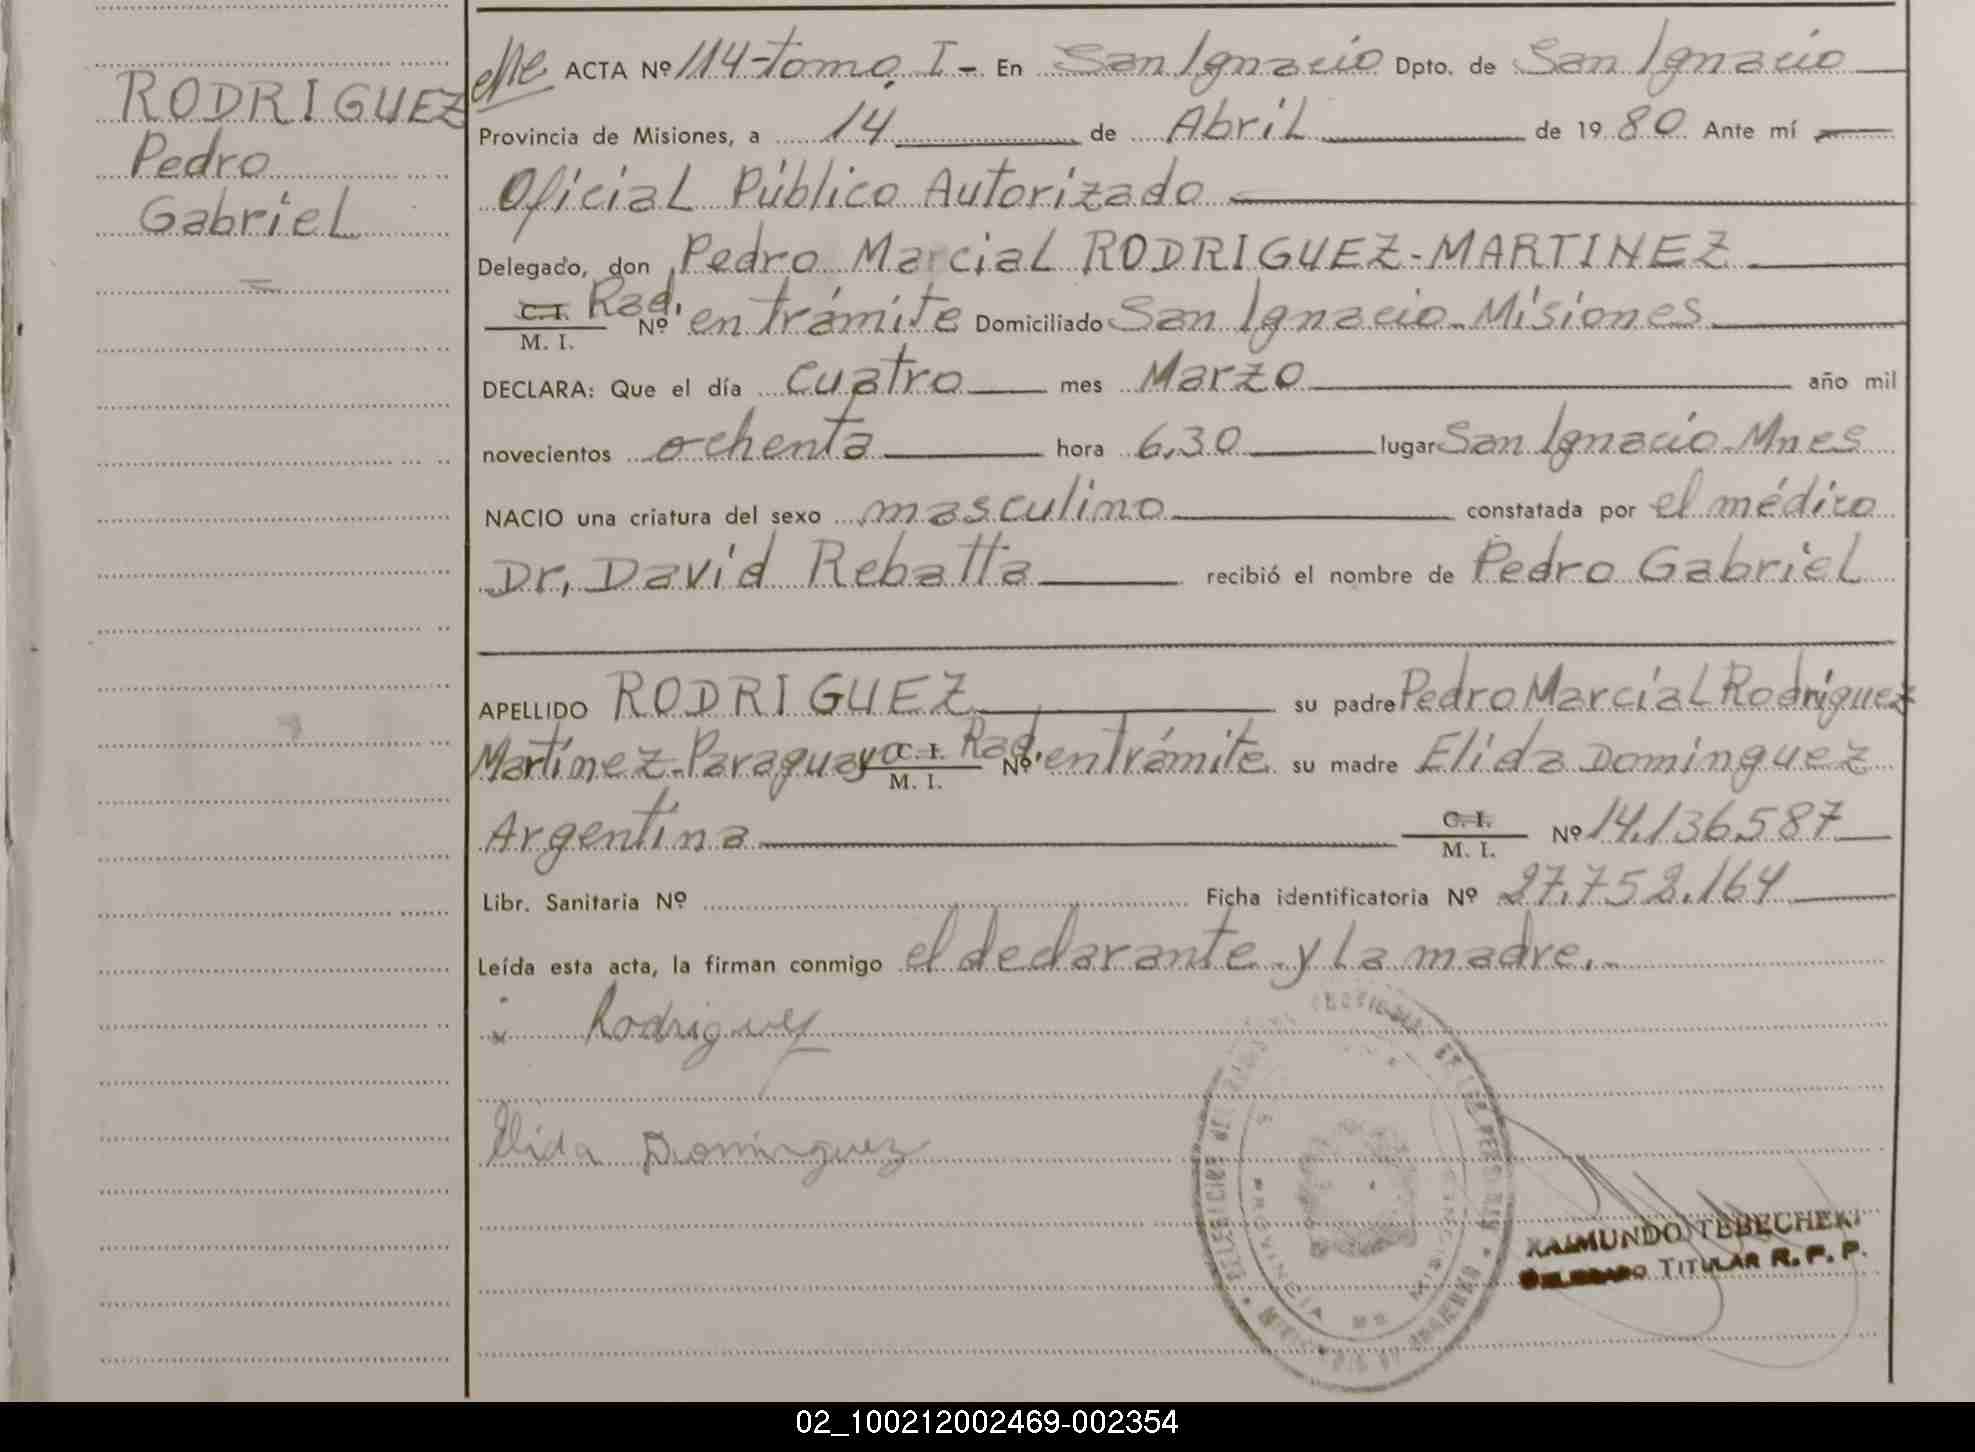 RODRIGUEZ
Pedro
Gabriel
ACTA Nº 114-tomo I- En San Ignacio Dpto. de San Ignacio
Provincia de Misiones, a 14 de Abril de 1980 Ante mí
Oficial Público Autorizado
Delegado, don Pedro Marcial RODRIGUEZ-MARTINEZ
C.I. Rad.
M. I. Nº en trámite Domiciliado San Ignacio-Misiones
DECLARA: Que el día cuatro mes Marzo año mil
novecientos ochenta hora 6,30 lugar San Ignacio-Mnes
NACIO una criatura del sexo masculino constatada por el médico
Dr, David Rebatta recibió el nombre de Pedro Gabriel
APELLIDO RODRIGUEZ su padre Pedro Marcial Rodriguez
Martínez-Paraguayo C. I. Rad. M. I. Nº en trámite su madre Elida Dominguez
Argentina C. I. M. I. Nº 14.136.587
Libr. Sanitaria Nº Ficha identificatoria Nº 27.752.164
Leída esta acta, la firman conmigo el declarante y la madre.-
x Rodriguez
Elida Dominguez
PROVINCIA DE MISIONES
RAIMUNDO TEBECHERI
DELEGADO TITULAR R. P. P.
02_100212002469-002354